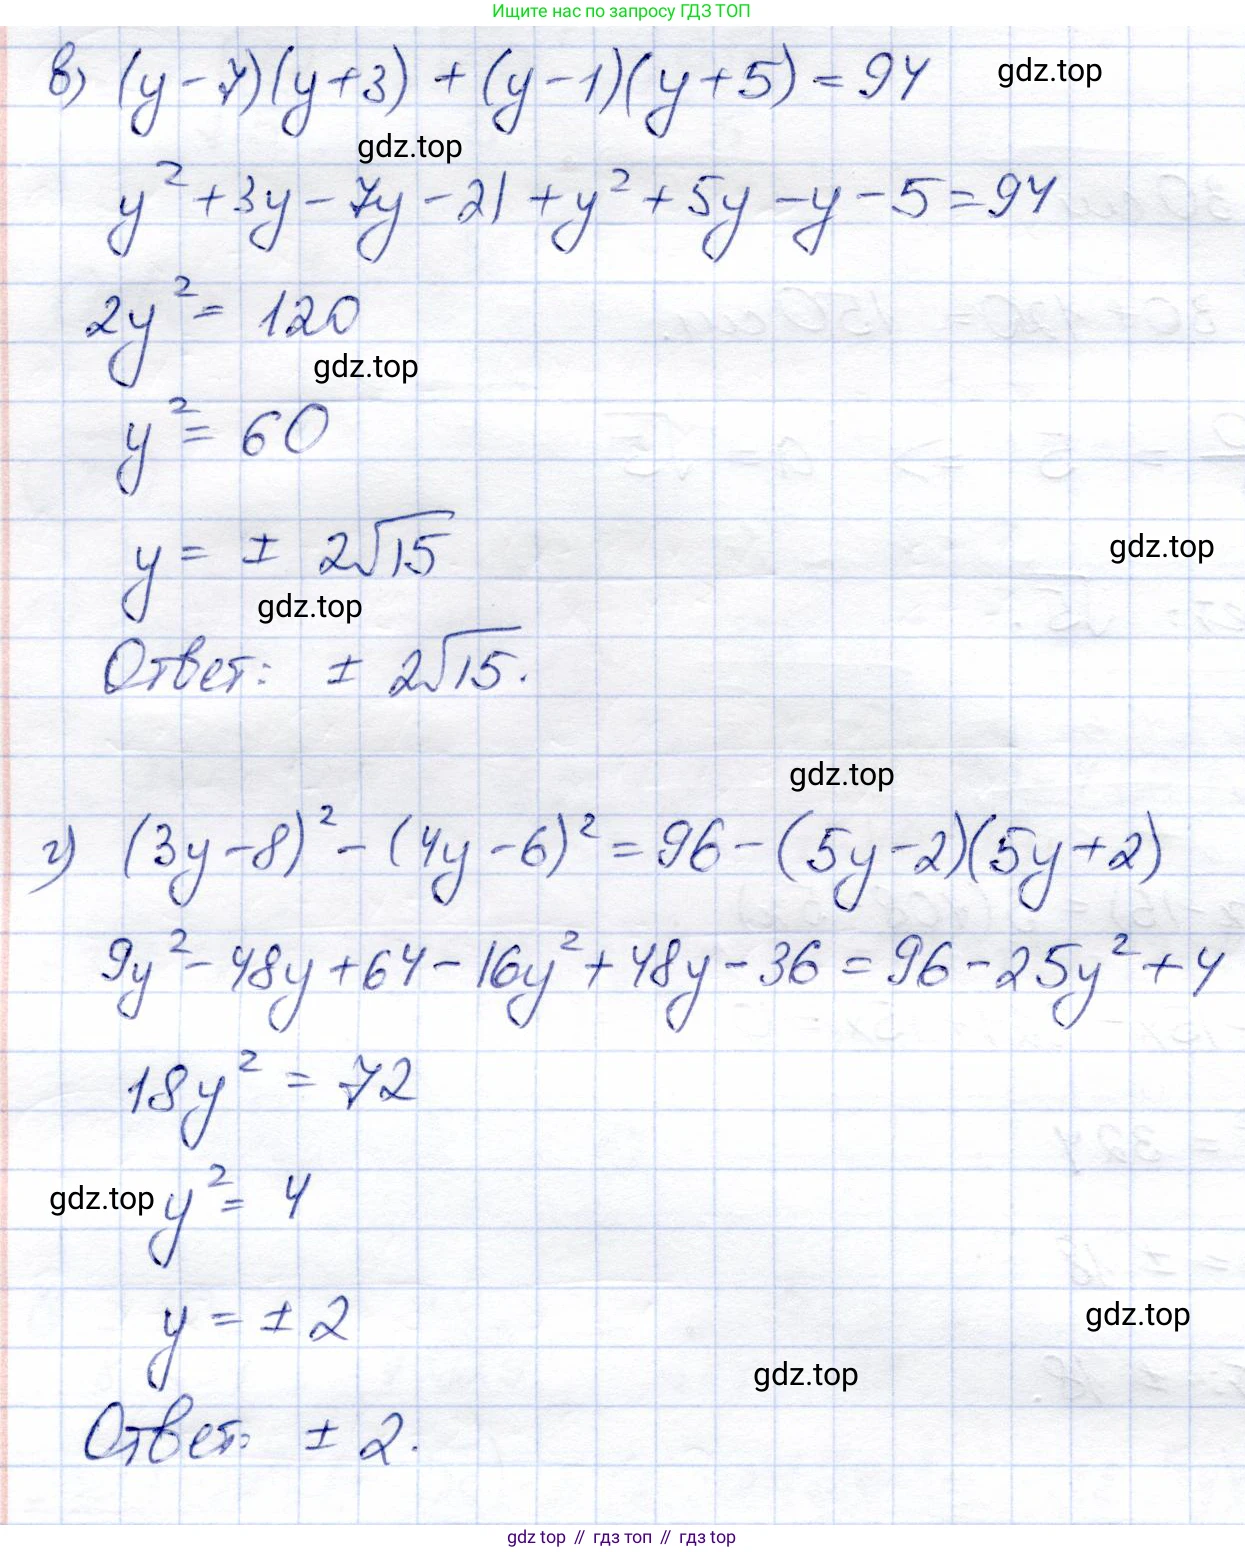 Ищите нас по запросу ГДЗ ТОП
в) (y - 7)(y + 3) + (y - 1)(y + 5) = 94
gdz.top
gdz.top
y² + 3y - 7y - 21 + y² + 5y - y - 5 = 94
2y² = 120
gdz.top
y² = 60
y = ± 2√15
gdz.top
gdz.top
Ответ: ± 2√15.
gdz.top
г) (3y - 8)² - (4y - 6)² = 96 - (5y - 2)(5y + 2)
9y² - 48y + 64 - 16y² + 48y - 36 = 96 - 25y² + 4
18y² = 72
gdz.top
y² = 4
y = ± 2
gdz.top
gdz.top
Ответ: ± 2.
gdz top // гдз топ // гдз top